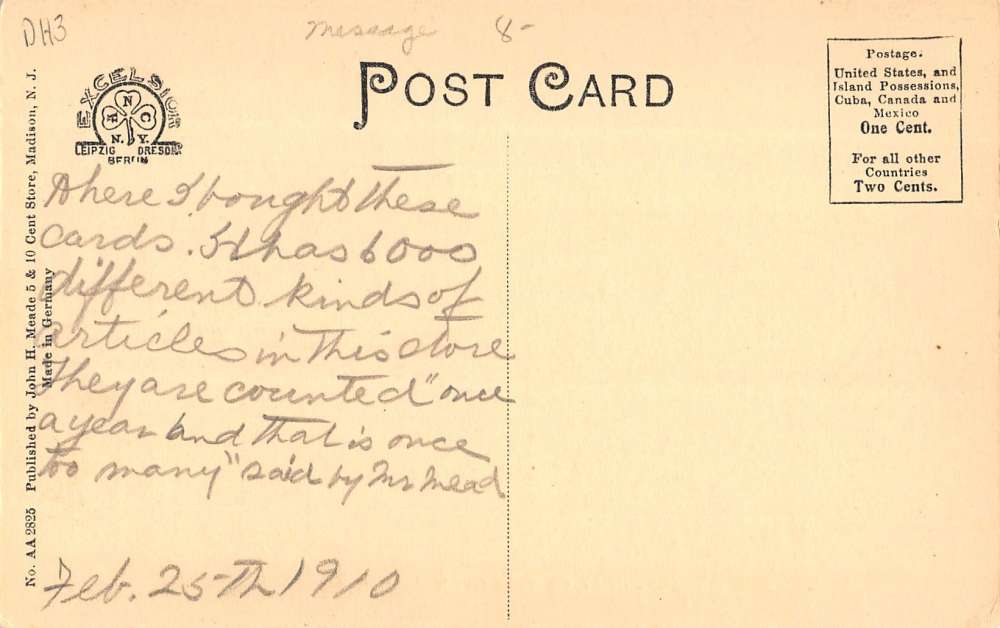 DH3
Message 8-
POST CARD
EXCELSIOR
N
H C
N. Y.
LEIPZIG DRESDN
BERLIN
Postage.
United States, and
Island Possessions,
Cuba, Canada and
Mexico
One Cent.
For all other
Countries
Two Cents.
Where I bought these
cards. It has 6000
different kinds of
articles in this store
They are counted "once
a year and that is once
too many" said by Mr Mead
Feb. 25-Th 1910
No. AA 2825 Published by John H. Meade 5 & 10 Cent Store, Madison, N. J.
Made in Germany